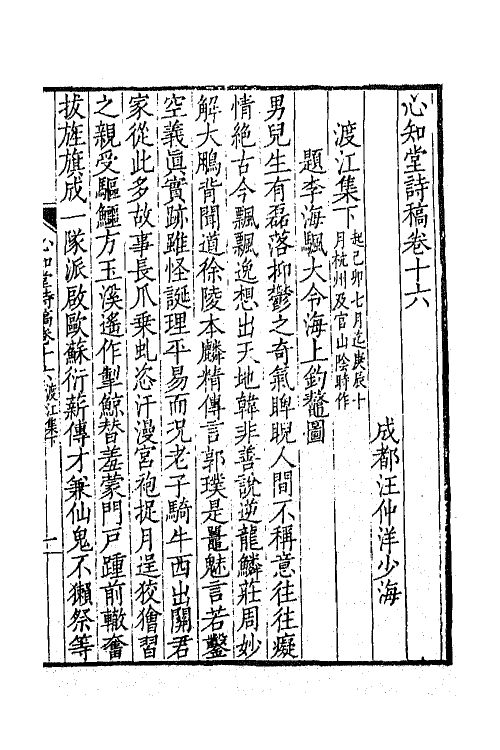 心知堂詩稿卷十六
成都汪仲洋少海
渡江集下
起己卯七月迄庚辰十
月杭州及官山陰時作
題李海颿大令海上釣鼇圖
男兒生有磊落抑鬱之奇氣睥睨人間不稱意往往癡
情絕古今飄飄逸想出天地韓非善說逆龍鱗莊周妙
解大鵬背聞道徐陵本麟精傳言郭璞是鼉魅言若鑿
空義眞實跡雖怪誕理平易而况老子騎牛西出關君
家從此多故事長爪乘虬恣汗漫宮袍捉月逞狡獪習
之親受驅鱷方玉溪遙作掣鯨替羞蒙門戸踵前轍奮
拔旌旗成一隊派啟歐蘇衍薪傳才兼仙鬼不獺祭等
心知堂詩稿卷十六 渡江集下
一